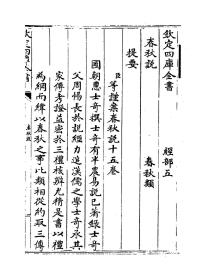 欽定四庫全書　經部五
春秋說　春秋類
提要
臣等謹案春秋說十五卷
國朝惠士奇撰士奇有半農易說已著錄士奇
父周惕長於說經力追漢儒之學士奇承其
家傳考證益密於三禮核辨尤精是書以禮
為綱而緯以春秋之事比類相從約取三傳
欽定四庫全書